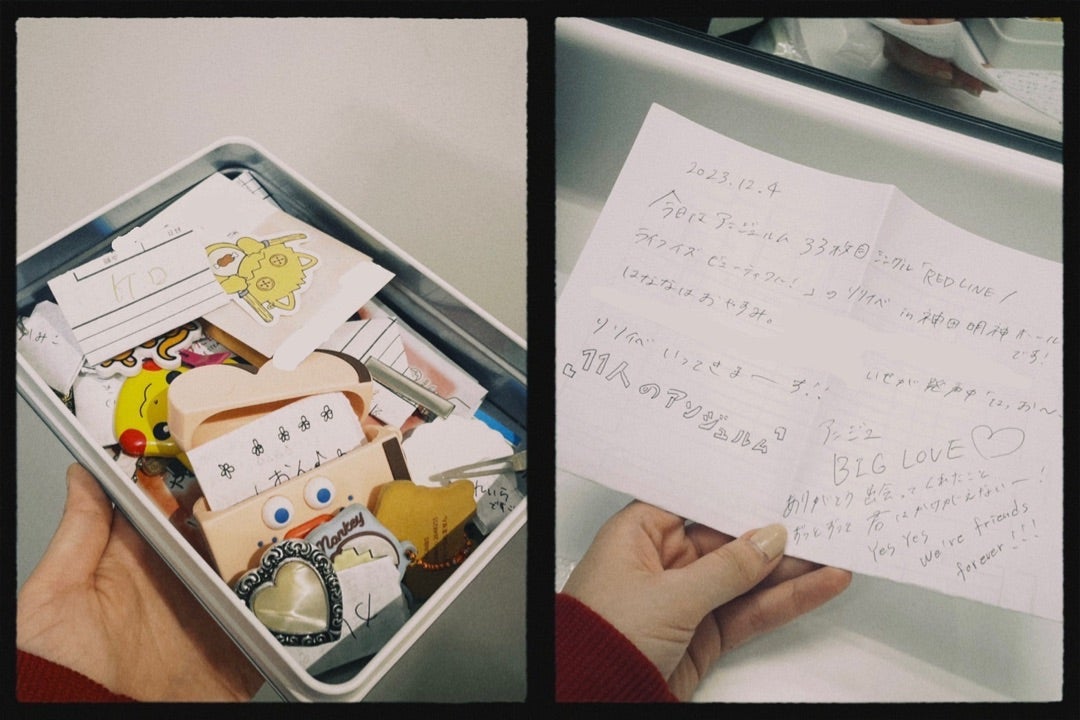 KD
おんち
Monkey
2023.12.4
今日は アンジュルム 33枚目 シングル「RED LINE /
ライフ イズ ビューティフル!」の リリイベ in 神田明神ホール
です!
はななは おやすみ。
リリイベ いってきまーす!!
『11人のアンジュルム』
アンジュ
BIG LOVE ♡
ありがとう 出会ってくれたこと
ずっとずっと 君は かけがえないー!
Yes Yes
We're friends
forever!!!